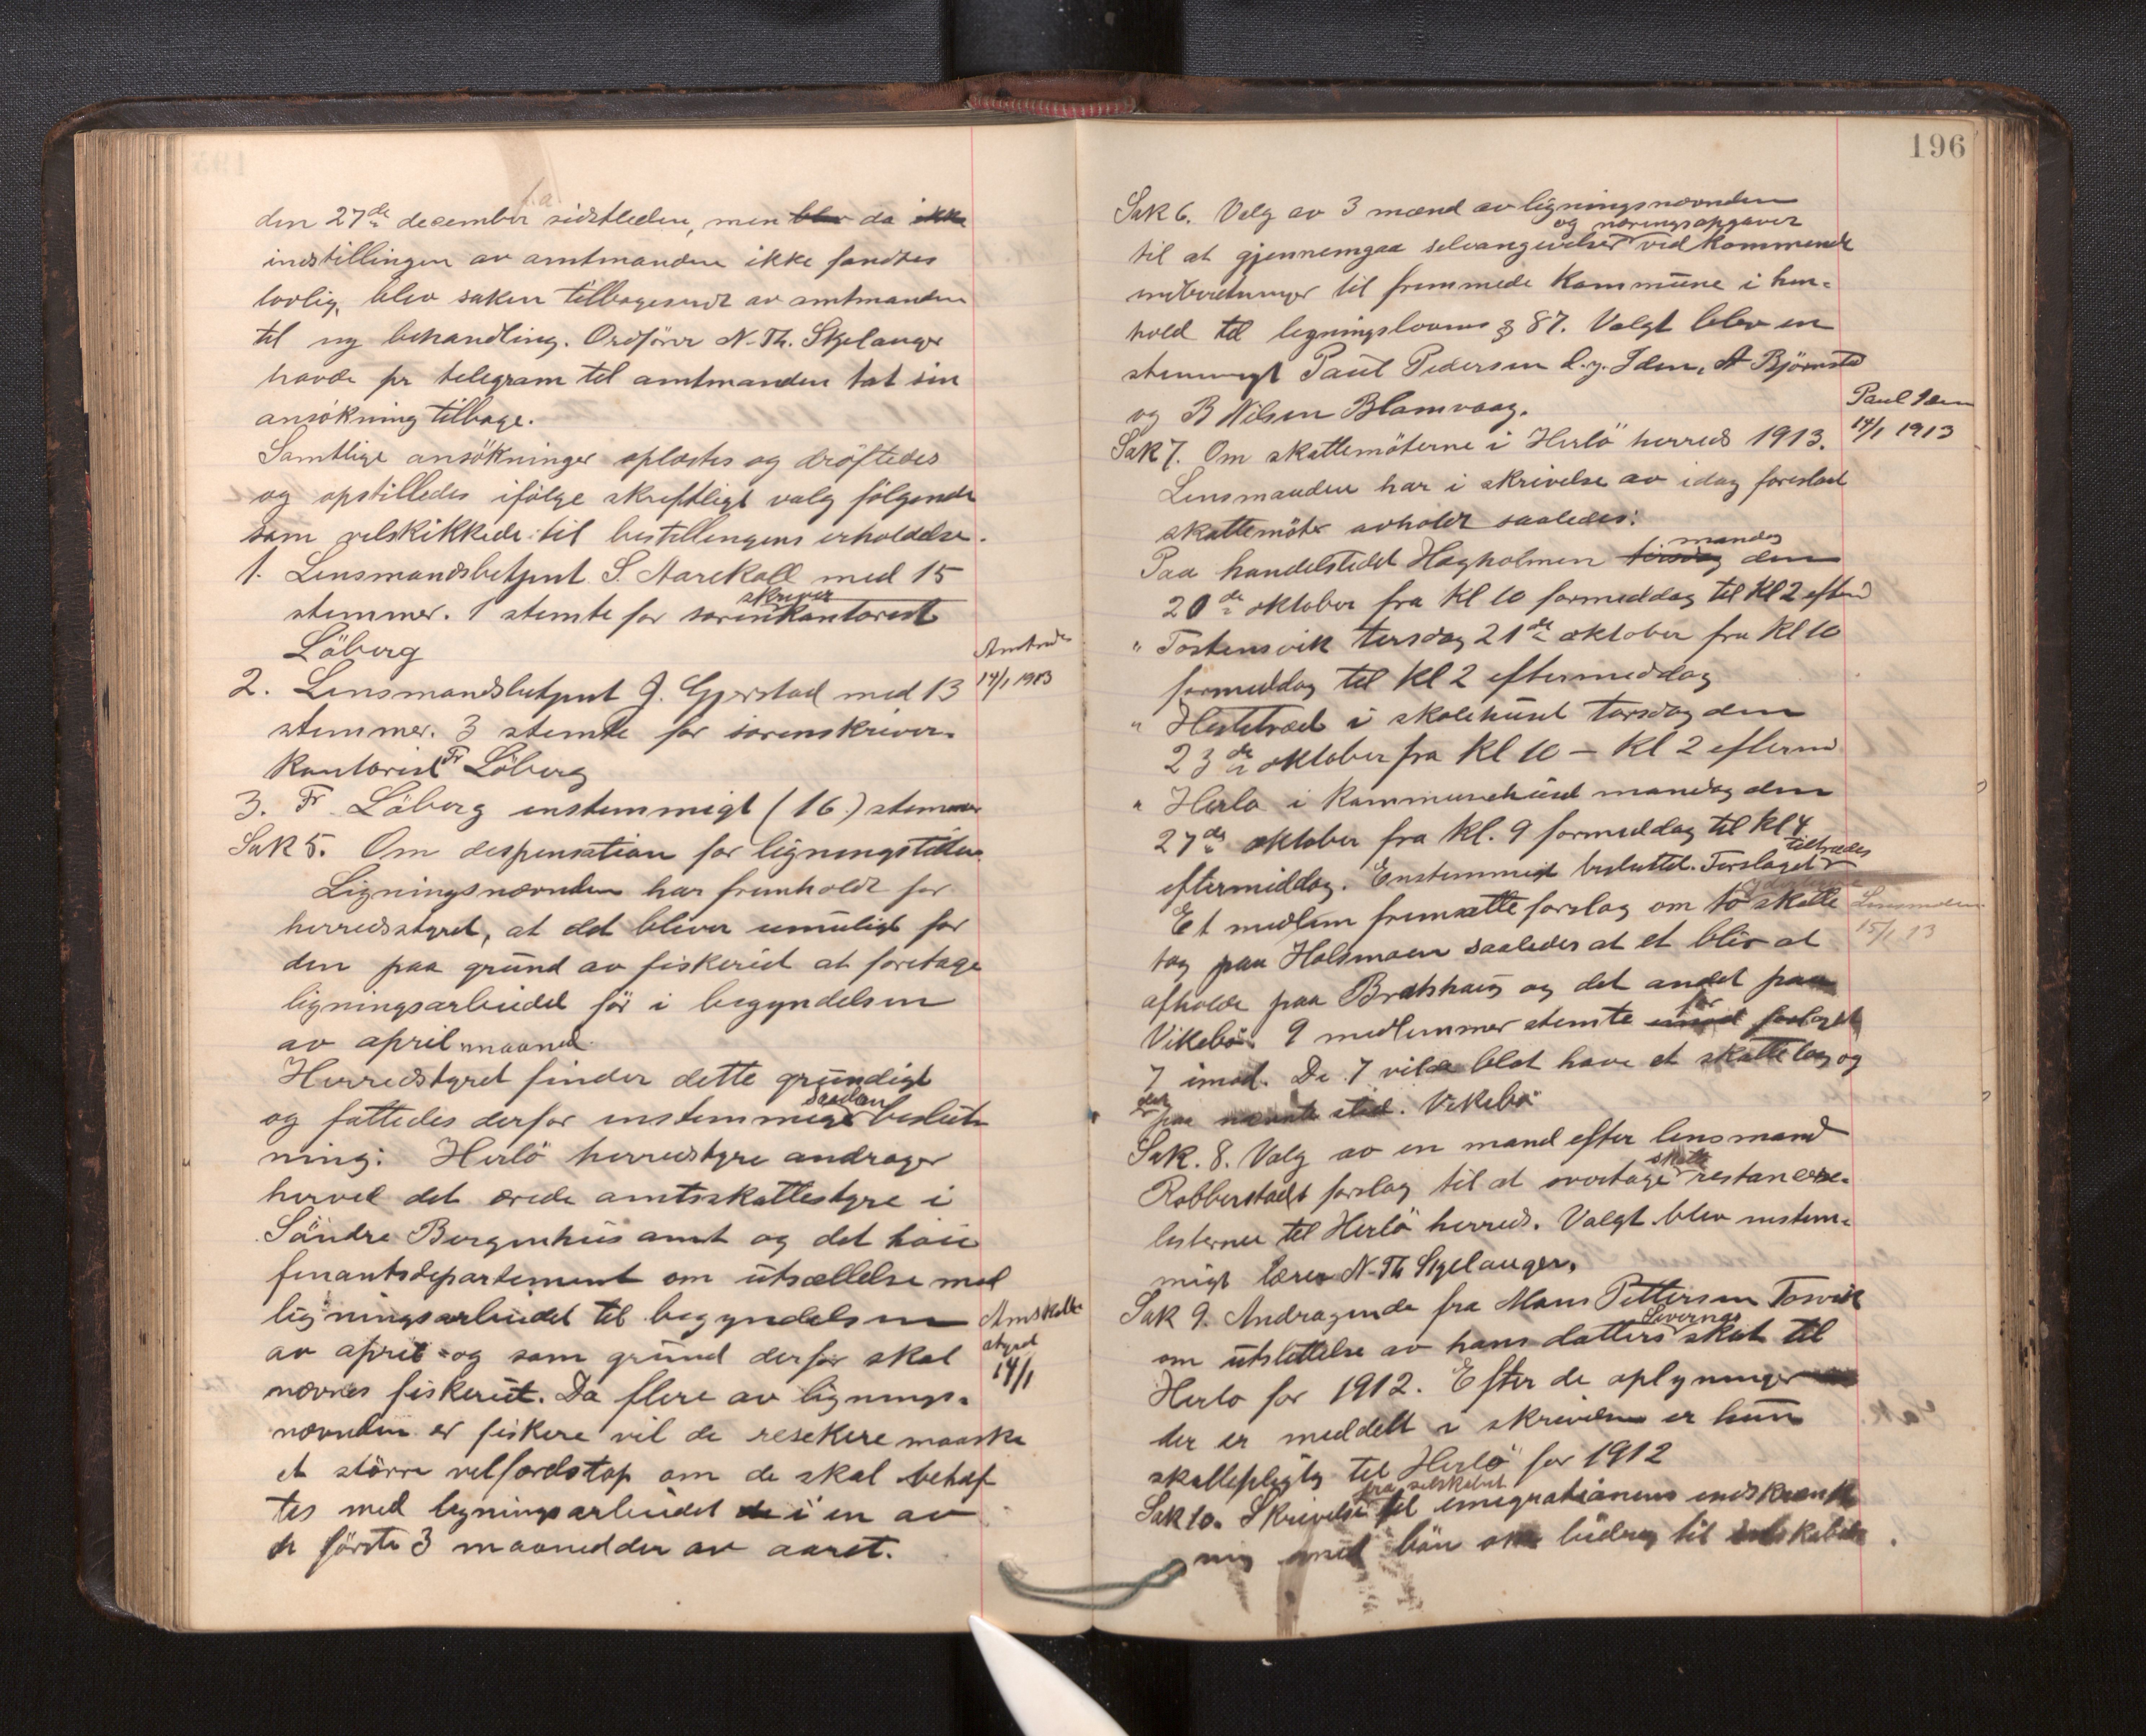 den 27de december sidstleden, men blev da ikke
indstillingen av amtmanden ikke fandtes
lovlig, blev saken tilbagesendt av amtmanden
til ny behandling. Ordförer N. Th. Skjelanger
havde pr telegram til amtmanden tat sin
ansökning tilbage.
Samtlige ansökninger oplæstes og dröftedes
og opstilledes ifölge skriftligt valg fölgende
som velskikkede til bestillingens erholdelse.
1. Lensmandsbetjent S. Aarekoll med 15
skriver
stemmer. 1 stemte for sorenkontorist
Löberg
Amtmd
14/1 1913
2. Lensmandsbetjent J. Gjerstad med 13
stemmer. 3 stemte for sorenskriver-
kontorist Fr Löberg
3. Fr Löberg enstemmigt (16) stemmer
Sak 5. Om dispensation for ligningstiden
Ligningsnævnden har fremholdt for
herredsstyret, at det bliver umuligt for
den paa grund av fiskeriet at foretage
ligningsarbeidet för i begyndelsen
av april maaned.
Herredstyret finder dette grundigt
saadan
og fattedes derfor enstemmig beslut
ning: Herlö herredstyre andrager
herved det ærede amtsskattestyre i
Söndre Bergenhus amt og det höie
finantsdepartement om utsættelse med
ligningsarbeidet til begyndelsen
Amtskatte
styret
14/1
av april og som grund derfor skal
nævnes fiskeriet. Da flere av lignings-
nævnden er fiskere vil de resekere maaske
et större velfærdstap om de skal behæf
tes med ligningsarbeidet de i en av
de förste 3 maanedder av aaret.
196
Sak 6. Valg av 3 mænd av ligningsnævnden
og næringsopgaver
til at gjennemgaa selvangivelser vedkommende
indbetninger til fremmede kommune i hen-
hold til ligningslovens § 87. Valgt blev en
stemmigt Paul Pedersen d.y. Iden, A Björnstad
og B Nilsen Blomvaag.
Paul Iden
14/1 1913
Sak 7. Om skattemöterne i Herlö herred 1913.
Lensmanden har i skrivelse av idag foreslaat
skattemöter avholdt saaledes:
mandag
Paa handelstedet Hagholmen tirsdag den
20de oktober fra kl 10 formiddag til kl 2 efterm
" Tostensvik tirsdag 21de oktober fra kl 10
formiddag til kl 2 eftermiddag
" Hestetræet i skolehuset torsdag den
23de oktober fra kl 10 – kl 2 efterm
" Herlo i kommunehuset mandag den
27de oktober fra kl. 9 formiddag til kl 4
tiltrædes
eftermiddag. Enstemmigt besluttet. Forslaget
Et medlem fremsatte forslag om to skatte
Lensmanden
15/1 13
tag paa Holsmoen saaledes at et blir at
afholde paa Bratshaug og det andet paa
for
Vikebö. 9 medlemmer stemte imod forslaget
7 imod. De 7 vilde blot have et skattetag og
det
paa nævnte sted. Vikebö
Sak. 8. Valg av en mand efter lensmand
skatte
Robberstads forslag til at overtage restance-
listerne til Herlö herred. Valgt blev enstem-
migt lærer N. Th Skjelanger.
Sak 9. Andragende fra Mons Pettersen Tosvik
Severine
om utslettelse av hans datters skat til
Herlo for 1912. Efter de oplysninger
der er meddelt i skrivelsen er hun
skattepligtig til Herlö for 1912
fra selskabet
Sak 10. Skrivelse til emigrationens indskrænk
ning med bön om bidrag til selskabet.